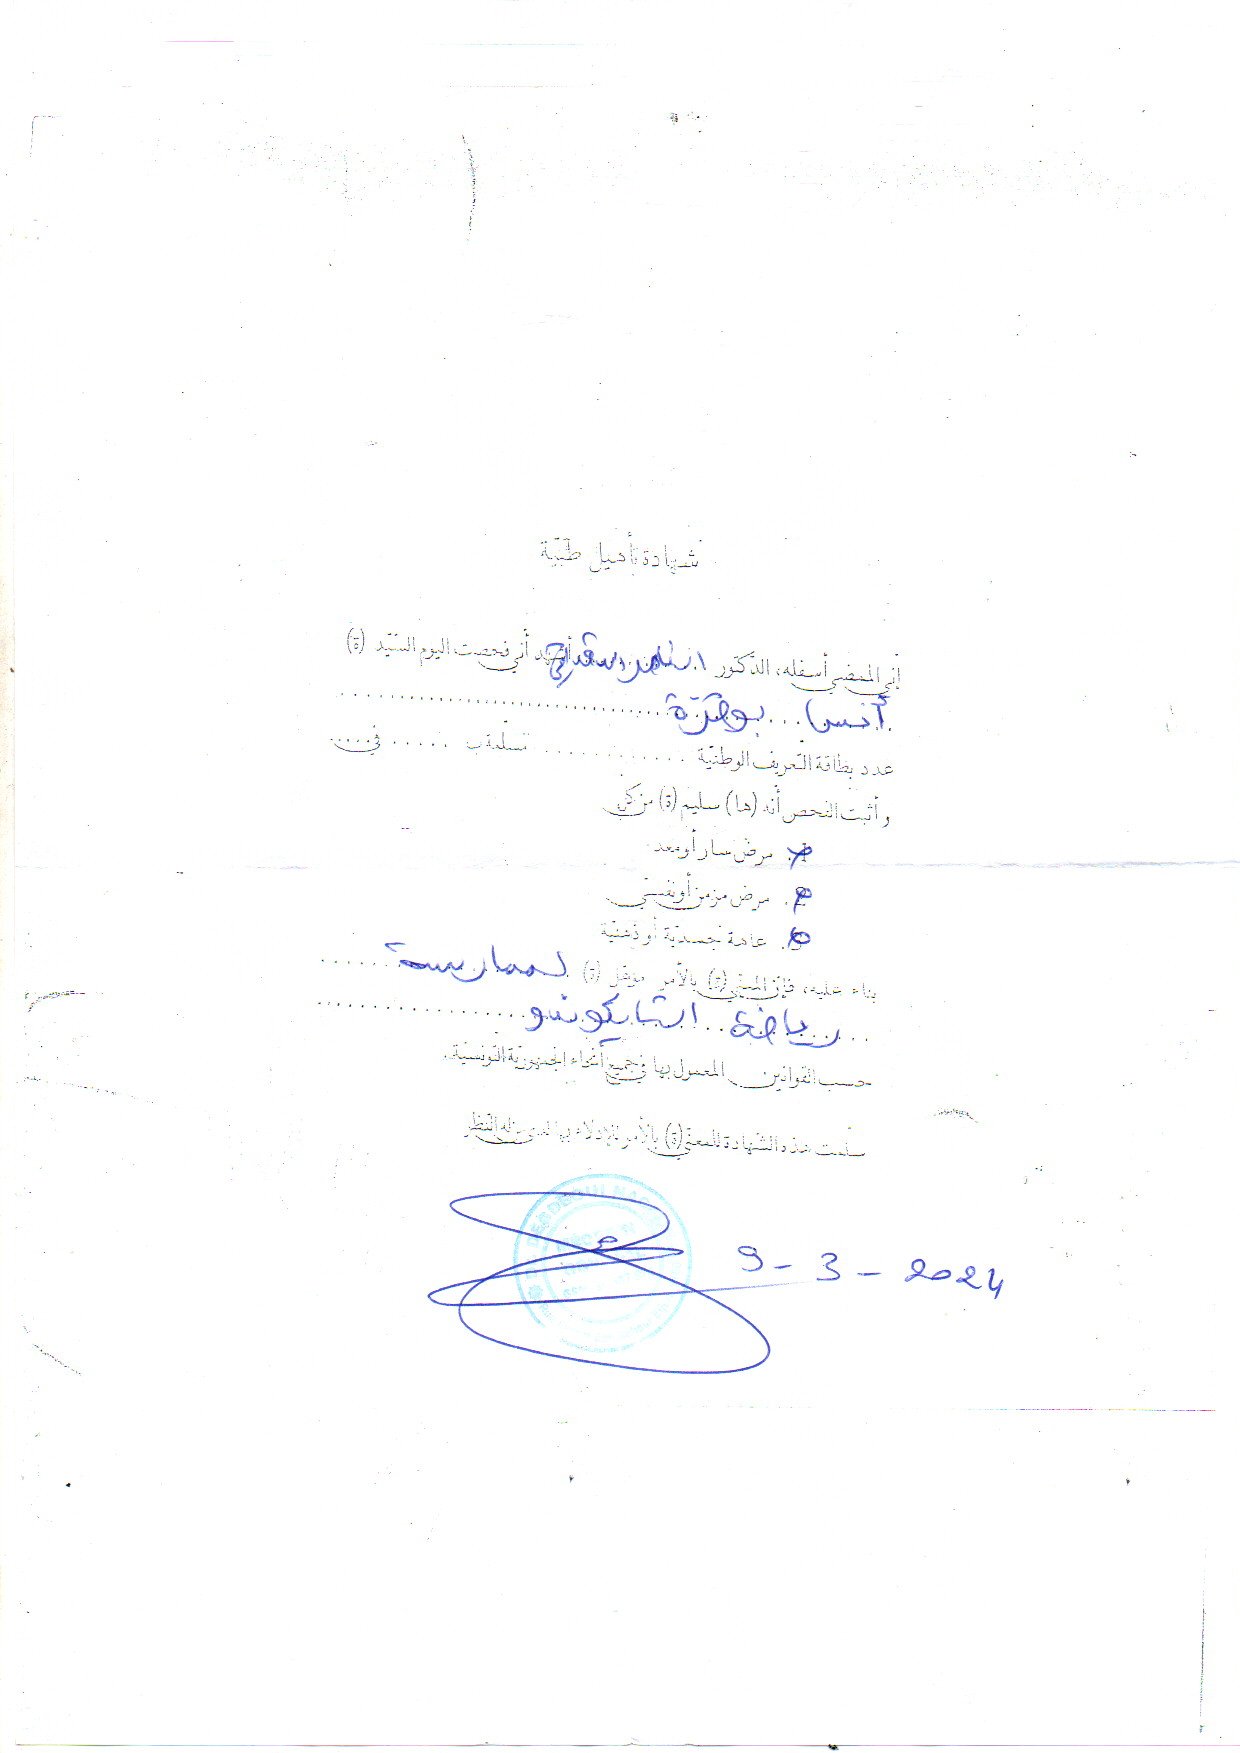 شهادة تأهيل طبّية
إنّي الممضي أسفله، الدّكتور أشهد أنّي فحصت اليوم السّيّد (ة)
أنس بوقرّة
عدد بطاقة التّعريف الوطنيّة ............ مسلّمة ب ...... في ......
و أثبت الفحص أنه (ها) سليم (ة) من كلّ
مرض سار أو معد
مرض مزمن أو نفسيّ
عاهة جسديّة أو ذهنيّة
بناء عليه، فإنّ المعنيّ (ة) بالأمر مؤهّل (ة) لممارسة ......
رياضة التايكوندو
حسب القوانين المعمول بها في جميع أنحاء الجمهوريّة التّونسيّة.
سلّمت هذه الشّهادة للمعنيّ (ة) بالأمر للإدلاء بها لدى من له النّظر
9 - 3 - 2024